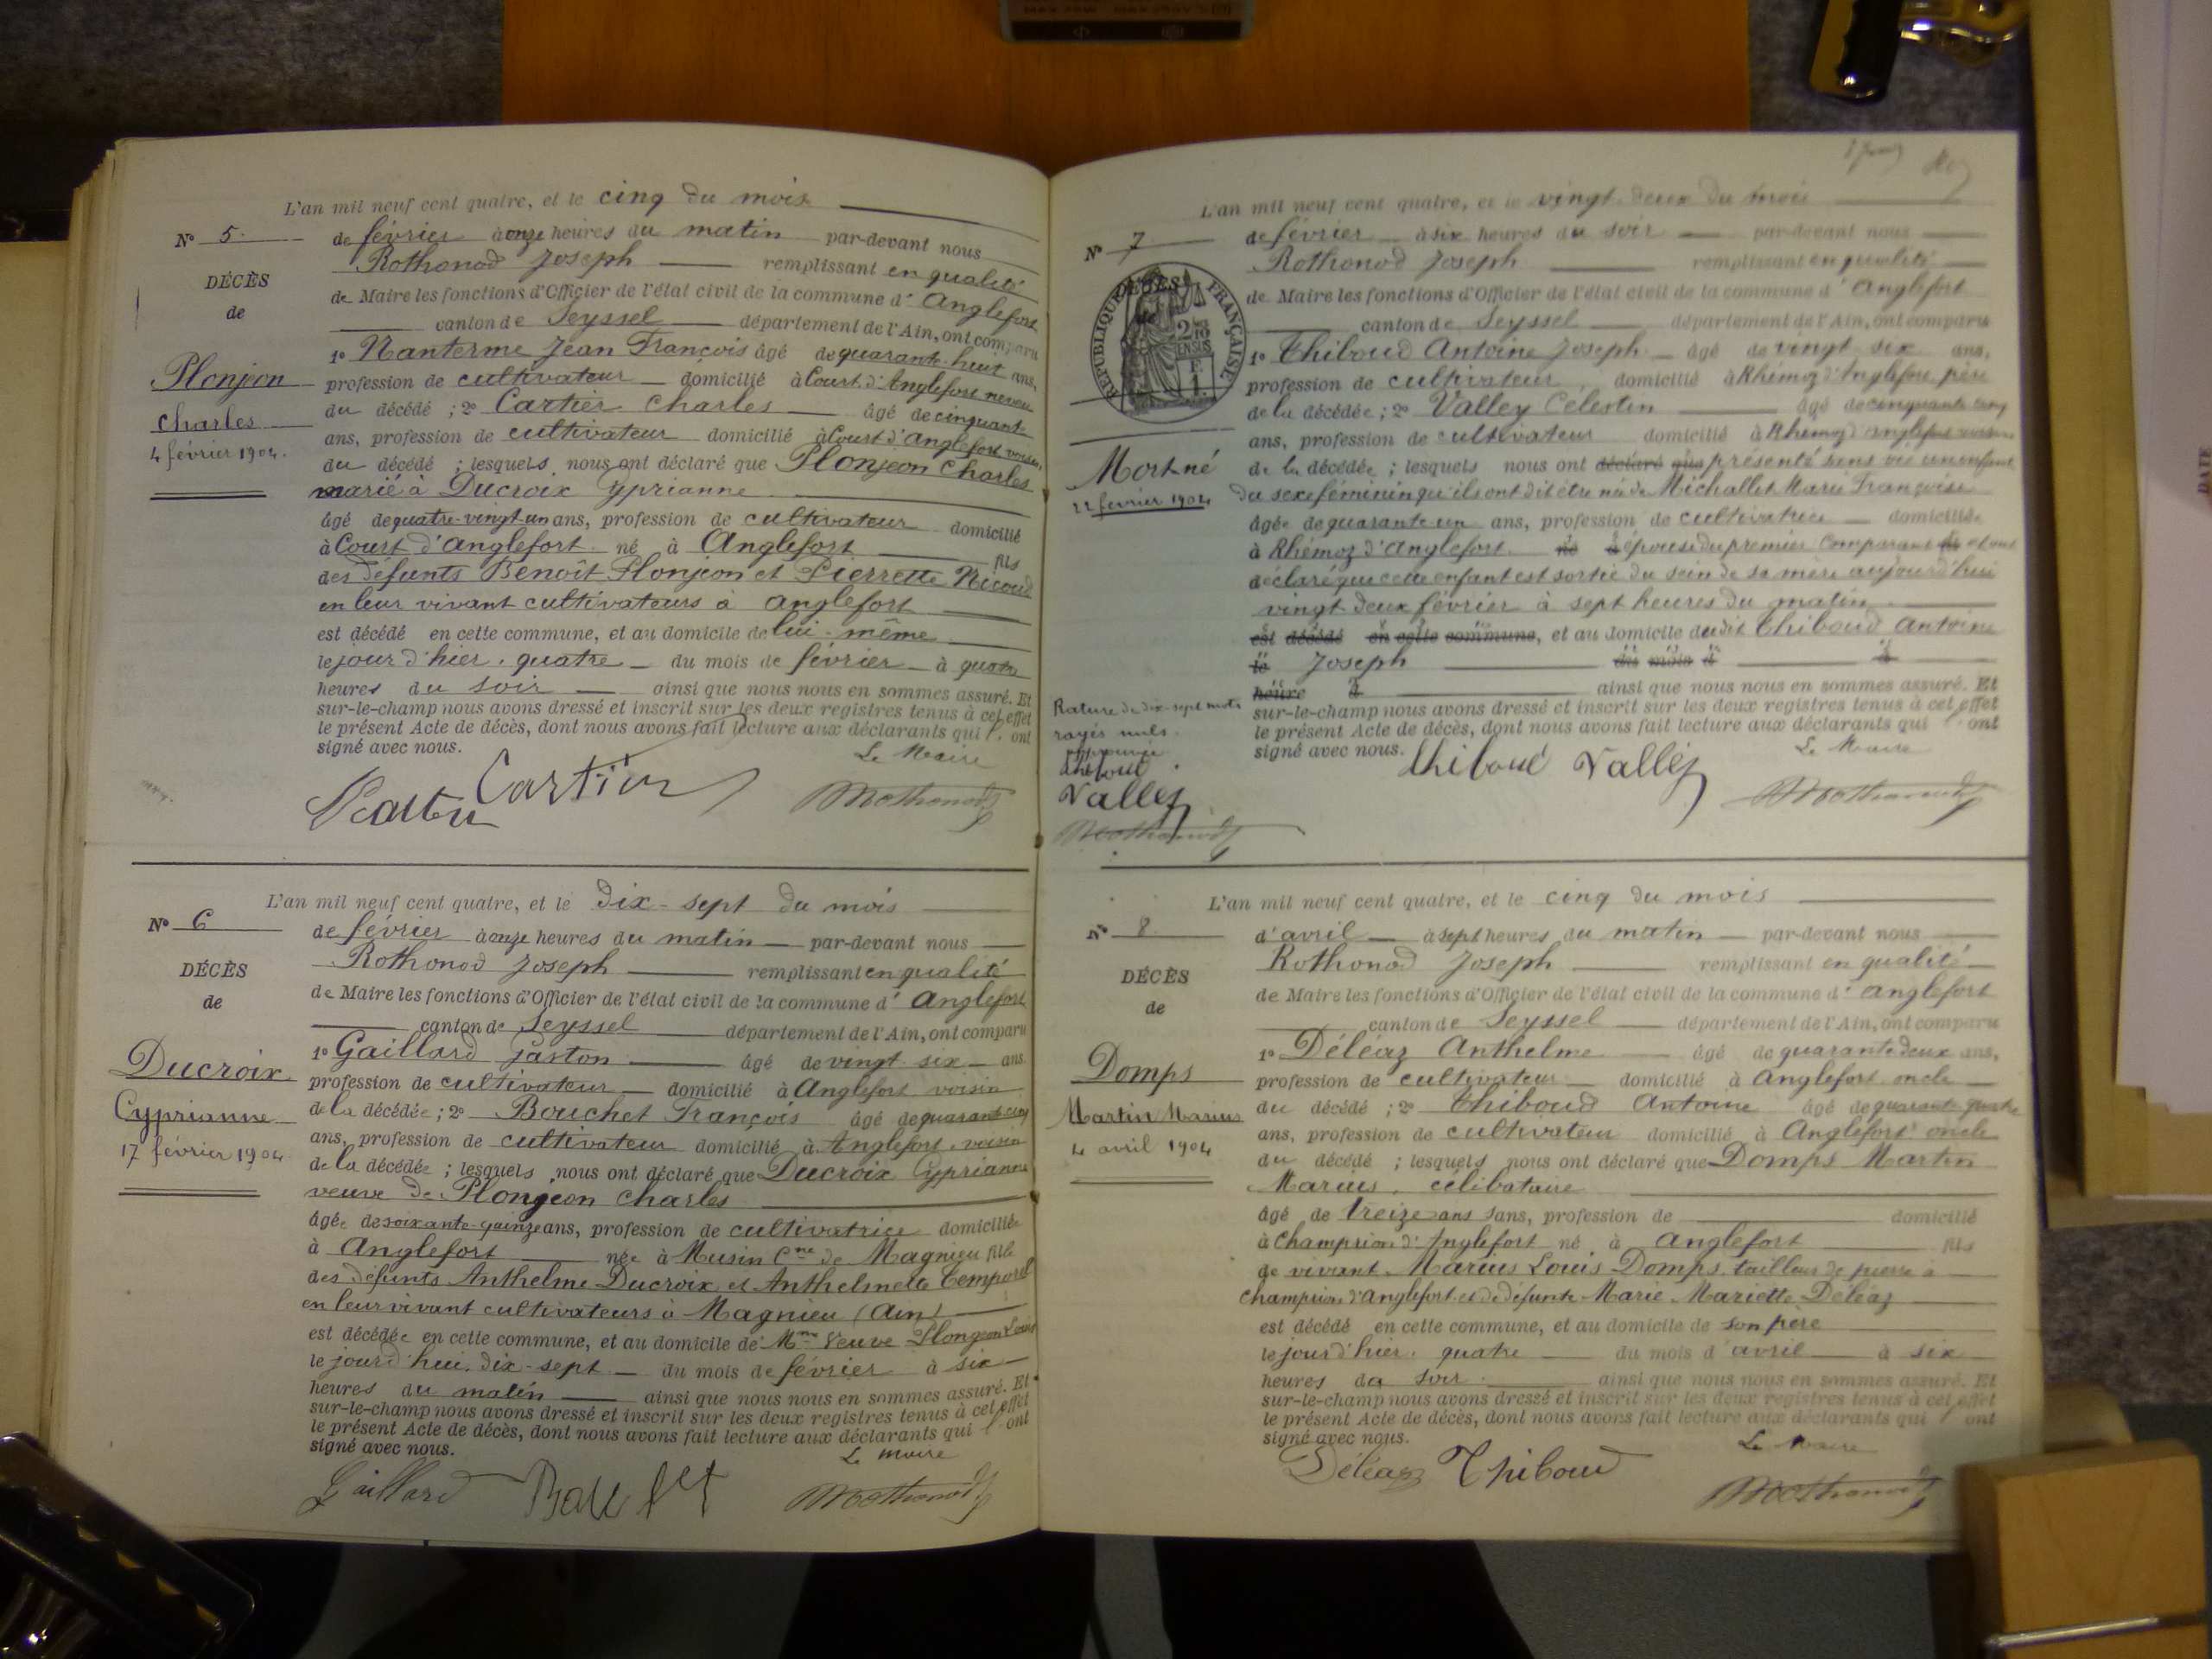 L'an mil neuf cent quatre, et le cinq du mois
N° 5
de février à onze heures du matin par-devant nous
Rothonod Joseph remplissant en qualité
DÉCÈS
de
de Maire les fonctions d'Officier de l'état civil de la commune d' Anglefort
canton de Seyssel département de l'Ain, ont comparu
1° Nanterme Jean François âgé de quarante-huit ans,
Plonjeon
profession de cultivateur domicilié à Court d'Anglefort neveu
Charles
du décédé ; 2° Cartier Charles âgé de cinquante
4 février 1904.
ans, profession de cultivateur domicilié à Court d'Anglefort voisin,
du décédé ; lesquels nous ont déclaré que Plonjeon Charles
marié à Ducroix Cyprianne
âgé de quatre-vingt-un ans, profession de cultivateur domicilié
à Court d'Anglefort né à Anglefort fils
des défunts Benoît Plonjeon et Pierrette Nicoud
en leur vivant cultivateurs à Anglefort
est décédé en cette commune, et au domicile de lui-même
le jour d'hier, quatre du mois de février à quatre
heures du soir ainsi que nous nous en sommes assuré. Et
sur-le-champ nous avons dressé et inscrit sur les deux registres tenus à cet effet
le présent Acte de décès, dont nous avons fait lecture aux déclarants qui l'ont
signé avec nous.
Le Maire
Cartier
Rothonod
L'an mil neuf cent quatre, et le dix-sept du mois
N° 6
de février à onze heures du matin par-devant nous
Rothonod Joseph remplissant en qualité
DÉCÈS
de
de Maire les fonctions d'Officier de l'état civil de la commune d' Anglefort
canton de Seyssel département de l'Ain, ont comparu
1° Gaillard Gaston âgé de vingt-six ans
Ducroix
profession de cultivateur domicilié à Anglefort voisin
Cyprianne
de la décédée ; 2° Bouchet François âgé de quarante cinq
ans, profession de cultivateur domicilié à Anglefort, voisin
17 février 1904
de la décédée ; lesquels nous ont déclaré que Ducroix Cyprianne
veuve de Plongeon Charles
âgée de soixante-quinze ans, profession de cultivatrice domiciliée
à Anglefort née à Musin Cne de Magnieu fille
des défunts Anthelme Ducroix et Anthelmette Temporel
en leur vivant cultivateurs à Magnieu (Ain)
est décédée en cette commune, et au domicile de Mme Veuve Plongeon Louis
le jour d'hui, dix-sept du mois de février à six
heures du matin ainsi que nous nous en sommes assuré. Et
sur-le-champ nous avons dressé et inscrit sur les deux registres tenus à cet effet
le présent Acte de décès, dont nous avons fait lecture aux déclarants qui l'ont
signé avec nous.
Le Maire
Gaillard
Rothonod
L'an mil neuf cent quatre, et le vingt-deux du mois
N° 7
de février à six heures du soir par-devant nous
Rothonod Joseph remplissant en qualité
DÉCÈS
RÉPUBLIQUE FRANÇAISE
de Maire les fonctions d'Officier de l'état civil de la commune d' Anglefort
canton de Seyssel département de l'Ain, ont comparu
1° Thiboud Antoine Joseph âgé de vingt-six ans,
profession de cultivateur, domicilié à Rhémoz d'Anglefort, père
de la décédée ; 2° Valley Celestin âgé de cinquante cinq
ans, profession de cultivateur domicilié à Rhémoz d'Anglefort voisin
Mort né
22 février 1904
de la décédée ; lesquels nous ont déclaré que présenté sans vie un enfant
du sexe féminin qu'ils ont dit être née de Michallet Marie Françoise
âgée de quarante-un ans, profession de cultivatrice domiciliée
à Rhémoz d'Anglefort né à épouse du premier comparant fils et ont
déclaré que cette enfant est sortie du sein de sa mère aujourd'hui
vingt-deux février à sept heures du matin
est décédé en cette commune, et au domicile dudit Thiboud Antoine
le Joseph du mois d à
heure d ainsi que nous nous en sommes assuré. Et
sur-le-champ nous avons dressé et inscrit sur les deux registres tenus à cet effet
le présent Acte de décès, dont nous avons fait lecture aux déclarants qui l'ont
signé avec nous.
Le Maire
Thiboud Valley
Rothonod
Rature de dix-sept mots
rayés nuls
approuvée
Thiboud
Valley
Rothonod
L'an mil neuf cent quatre, et le cinq du mois
N° 8
d'avril à sept heures du matin par-devant nous
Rothonod Joseph remplissant en qualité
DÉCÈS
de
de Maire les fonctions d'Officier de l'état civil de la commune d' Anglefort
canton de Seyssel département de l'Ain, ont comparu
1° Déléaz Anthelme âgé de quarante deux ans,
Domps
profession de cultivateur domicilié à Anglefort oncle
Martin Marius
du décédé ; 2° Thiboud Antoine âgé de quarante-quatre
4 avril 1904
ans, profession de cultivateur domicilié à Anglefort oncle
du décédé ; lesquels nous ont déclaré que Domps Martin
Marius, célibataire
âgé de treize ans sans, profession de domicilié
à Champrion d'Anglefort né à Anglefort fils
de vivant Marius Louis Domps tailleur de pierre à
Champrion d'Anglefort et de défunte Marie Mariette Déléaz
est décédé en cette commune, et au domicile de son père
le jour d'hier, quatre du mois d'avril à six
heures du soir ainsi que nous nous en sommes assuré. Et
sur-le-champ nous avons dressé et inscrit sur les deux registres tenus à cet effet
le présent Acte de décès, dont nous avons fait lecture aux déclarants qui l'ont
signé avec nous.
Le Maire
Déléaz Thiboud
Rothonod
DATE